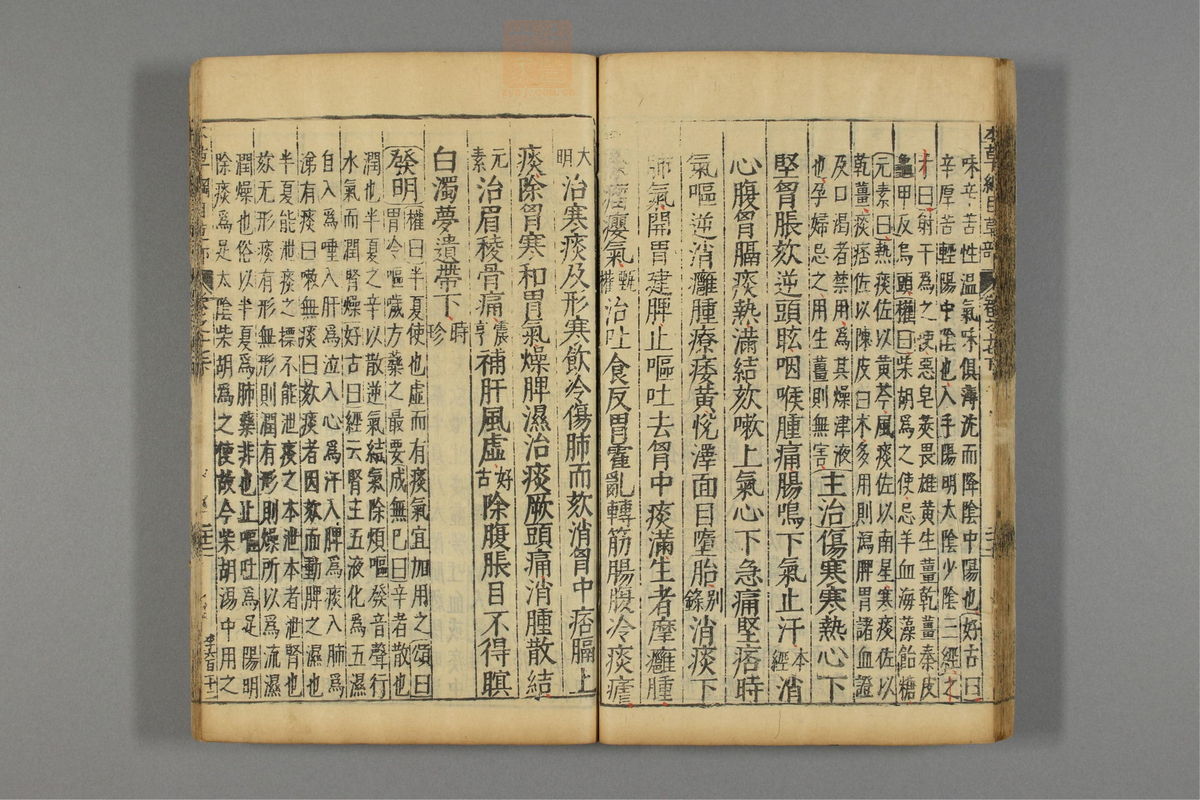 味辛苦性温氣味俱薄沈而降陰中陽也好古曰
辛厚苦輕陽中陰也入手陽明太陰少陰三經之
才曰射干爲之使惡皂莢畏雄黄生薑乾薑秦皮
龜甲反烏頭權曰柴胡爲之使忌羊血海藻飴糖
元素曰熱痰佐以黄芩風痰佐以南星寒痰佐以
乾薑痰痞佐以陳皮白术多用則瀉脾胃諸血證
及口渴者禁用爲其燥津液
也孕婦忌之用生薑則無害主治傷寒寒熱心下
堅胷脹欬逆頭眩咽喉腫痛腸鳴下氣止汗本經消
心腹胷膈痰熱滿結欬嗽上氣心下急痛堅痞時
氣嘔逆消癰腫療痿黄悅澤面目墮胎别錄消痰下
肺氣開胃建脾止嘔吐去胷中痰滿生者摩癰腫
瘤癭氣甄權治吐食反胃霍亂轉筋腸腹冷痰瘧
大明治寒痰及形寒飲冷傷肺而欬消胷中痞膈上
痰除胷寒和胃氣燥脾濕治痰厥頭痛消腫散結
元素治眉稜骨痛震亨補肝風虛好古除腹脹目不得瞑
白濁夢遺帶下時珍
發明權曰半夏使也虛而有痰氣宜加用之頌曰
胃冷嘔噦方藥之最要成無已曰辛者散也
潤也半夏之辛以散逆氣結氣除煩嘔發音聲行
水氣而潤腎燥好古曰經云腎主五液化爲五濕
自入爲唾入肝爲泣入心爲汗入脾爲痰入肺爲
涕有痰曰嗽無痰曰欬痰者因欬而動脾之濕也
半夏能泄痰之標不能泄痰之本泄本者泄腎也
欬无形痰有形無形則潤有形則燥所以爲流濕
潤燥也俗以半夏爲肺藥非也止嘔吐爲足陽明
除痰爲足太陰柴胡爲之使故今柴胡湯中用之